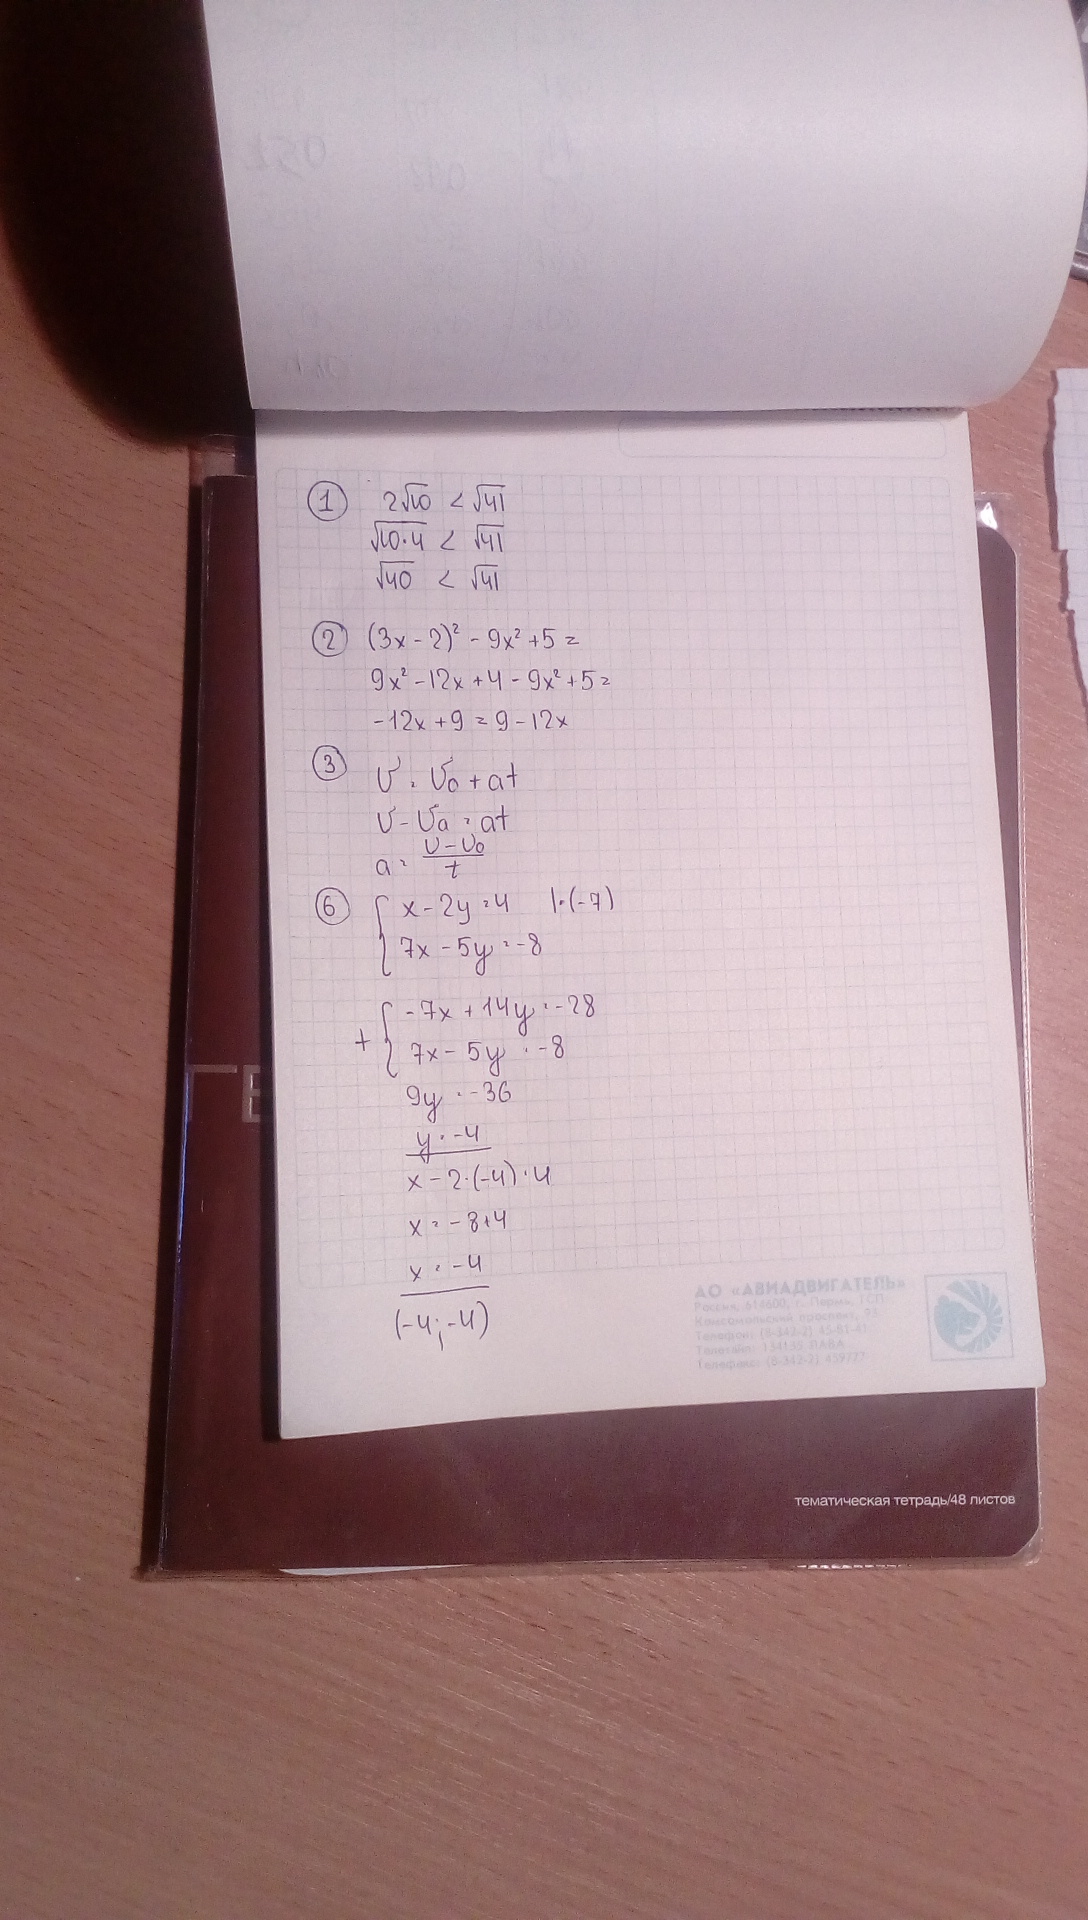 ① 2√10 < √41
√10·4 < √41
√40 < √41
② (3x - 2)² - 9x² + 5 =
9x² - 12x + 4 - 9x² + 5 =
-12x + 9 = 9 - 12x
③ υ = υ₀ + at
υ - υa = at
a = (υ - υ₀)/t
⑥ { x - 2y = 4 |·(-7)
7x - 5y = -8
+ { -7x + 14y = -28
7x - 5y = -8
9y = -36
y = -4
x - 2·(-4) = 4
x = -8+4
x = -4
(-4; -4)
АО «АВИАДВИГАТЕЛЬ»
Россия, 614600, г. Пермь, ГСП
Комсомольский проспект, 93
Телефон: (8-342-2) 45-61-41
Телетайп: 134135 ЛАВА
Телефакс: (8-342-2) 459777
тематическая тетрадь/48 листов